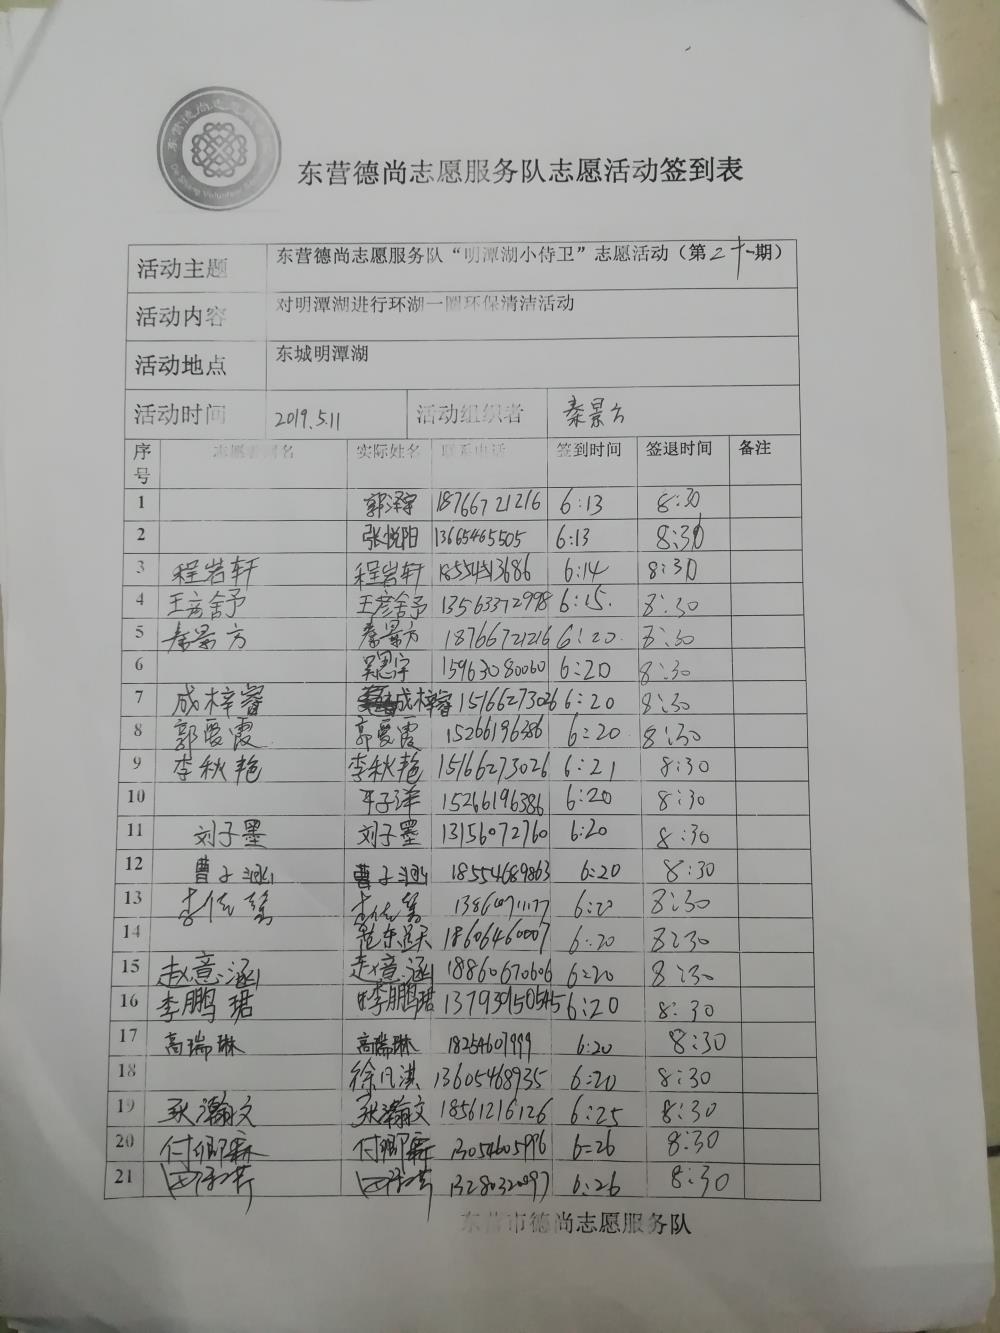 东营德尚志愿服务队志愿活动签到表
活动主题 东营德尚志愿服务队“明潭湖小侍卫”志愿活动（第二十一期）
活动内容 对明潭湖进行环湖一圈环保清洁活动
活动地点 东城明潭湖
活动时间 2019.5.11 活动组织者 秦景方
序号 志愿者网名 实际姓名 联系电话 签到时间 签退时间 备注
1 郭泽宇 18766721216 6:13 8:30
2 张悦阳 13665465505 6:13 8:30
3 程岩轩 程岩轩 18554513686 6:14 8:30
4 王彦舒予 王彦舒予 13563372998 6:15. 8:30
5 秦景方 秦景方 18766721216 6:20. 8:30
6 吴思宇 15963080060 6:20 8:30
7 成梓睿 成梓睿 15166273026 6:20 8:30
8 郭爱霞 郭爱霞 15266196386 6:20 8:30
9 李秋艳 李秋艳 15166273026 6:21 8:30
10 子洋 15266196386 6:20 8:30
11 刘子墨 刘子墨 13156072760 6:20 8:30
12 曹子涵 曹子涵 18554689863 6:20 8:30
13 李依 李依 6:20 8:30
14 18606460007 6:20 8:30
15 赵意涵 赵意涵 18860670606 6:20 8:30
16 李鹏珺 李鹏珺 6:20 8:30
17 高瑞琳 高瑞琳 18254607999 6:20 8:30
18 徐凡淇 13605468935 6:20 8:30
19 耿瀚文 耿瀚文 18561216126 6:25 8:30
20 付卿霖 付卿霖 13054605996 6:26 8:30
21 田 田 13280320097 6:26 8:30
东营市德尚志愿服务队